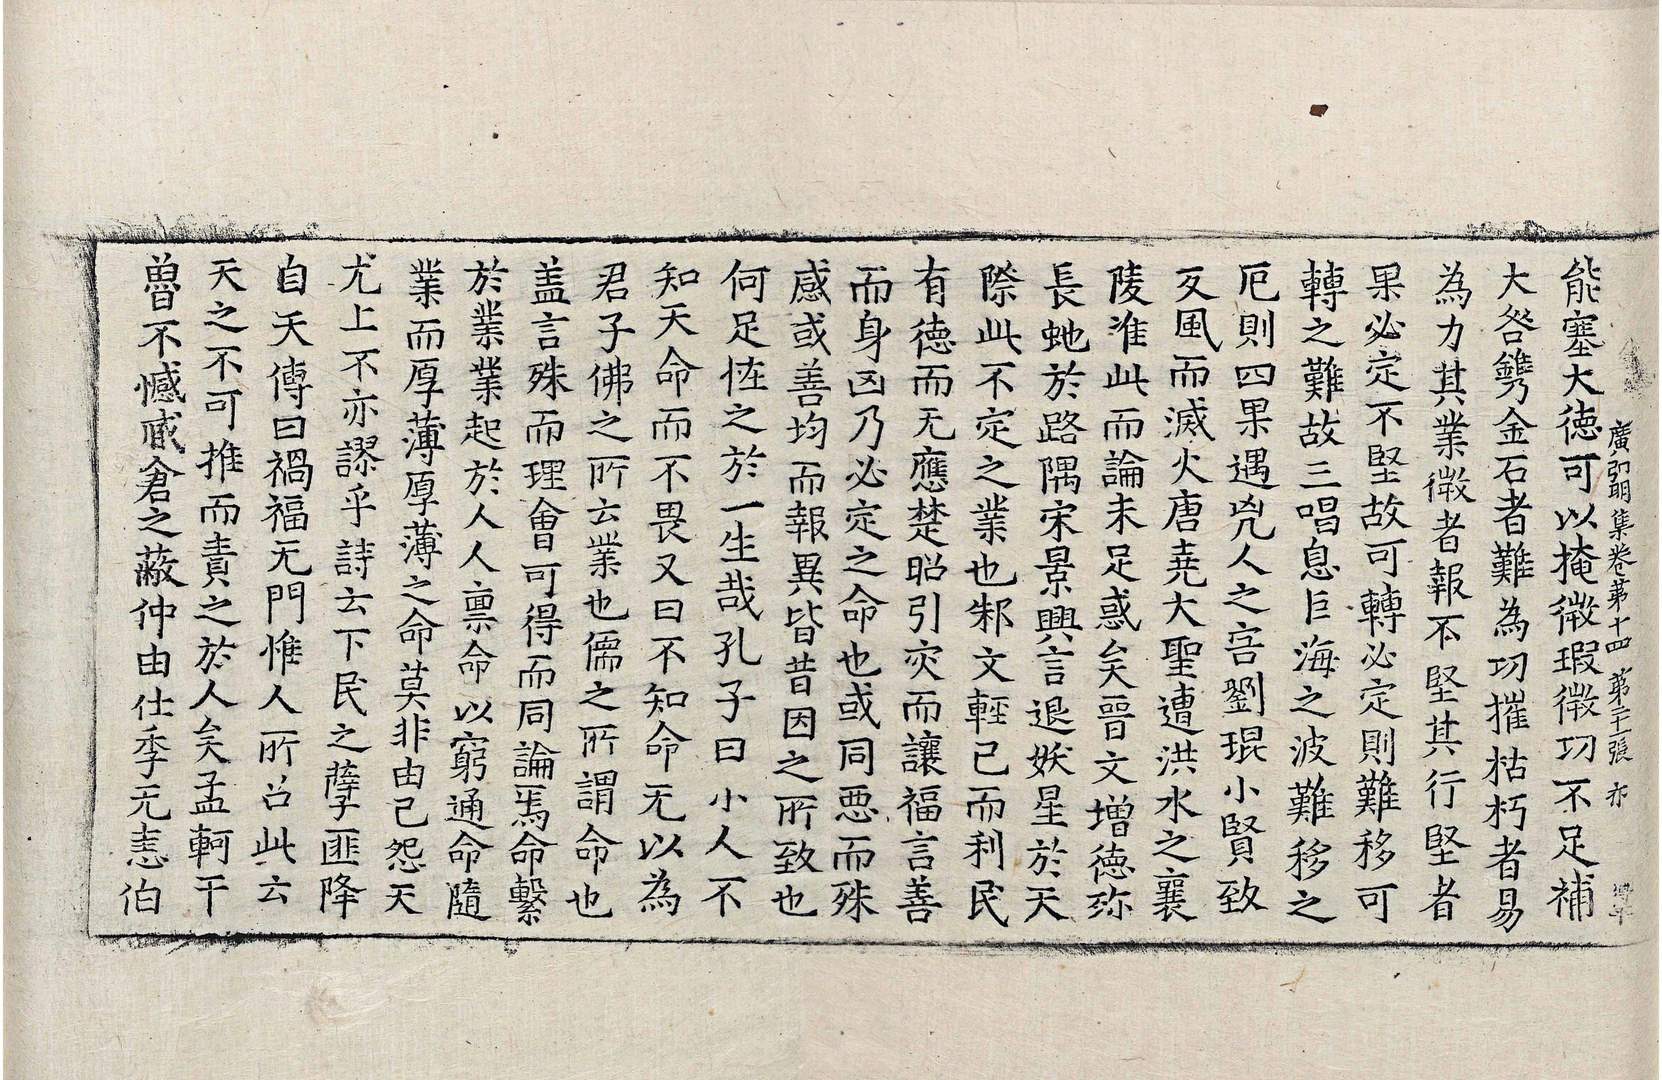 能塞大德可以掩微瑕微功不足補
廣弘明集卷第十四 第二十一張 亦
大咎鐫金石者難為功摧枯朽者易
為力其業微者報不堅其行堅者
果必定不堅故可轉必定則難移可
轉之難故三唱息巨海之波難移之
厄則四果遇兇人之害劉琨小賢致
反風而滅火唐堯大聖遭洪水之襄
陵准此而論未足惑矣晉文增德殄
長虵於路隅宋景興言退妖星於天
際此不定之業也邾文輕已而利民
有德而无應楚昭引灾而讓福言善
而身凶乃必定之命也或同惡而殊
感或善均而報異皆昔因之所致也
何足恠之於一生哉孔子曰小人不
知天命而不畏又曰不知命无以為
君子佛之所云業也儒之所謂命也
盖言殊而理會可得而同論焉命繫
於業業起於人人禀命以窮通命隨
業而厚薄厚薄之命莫非由己怨天
尤上不亦謬乎詩云下民之孽匪降
自天傳曰禍福无門惟人所召此云
天之不可推而責之於人矣孟軻干
魯不憾臧倉之蔽仲由仕季无恚伯